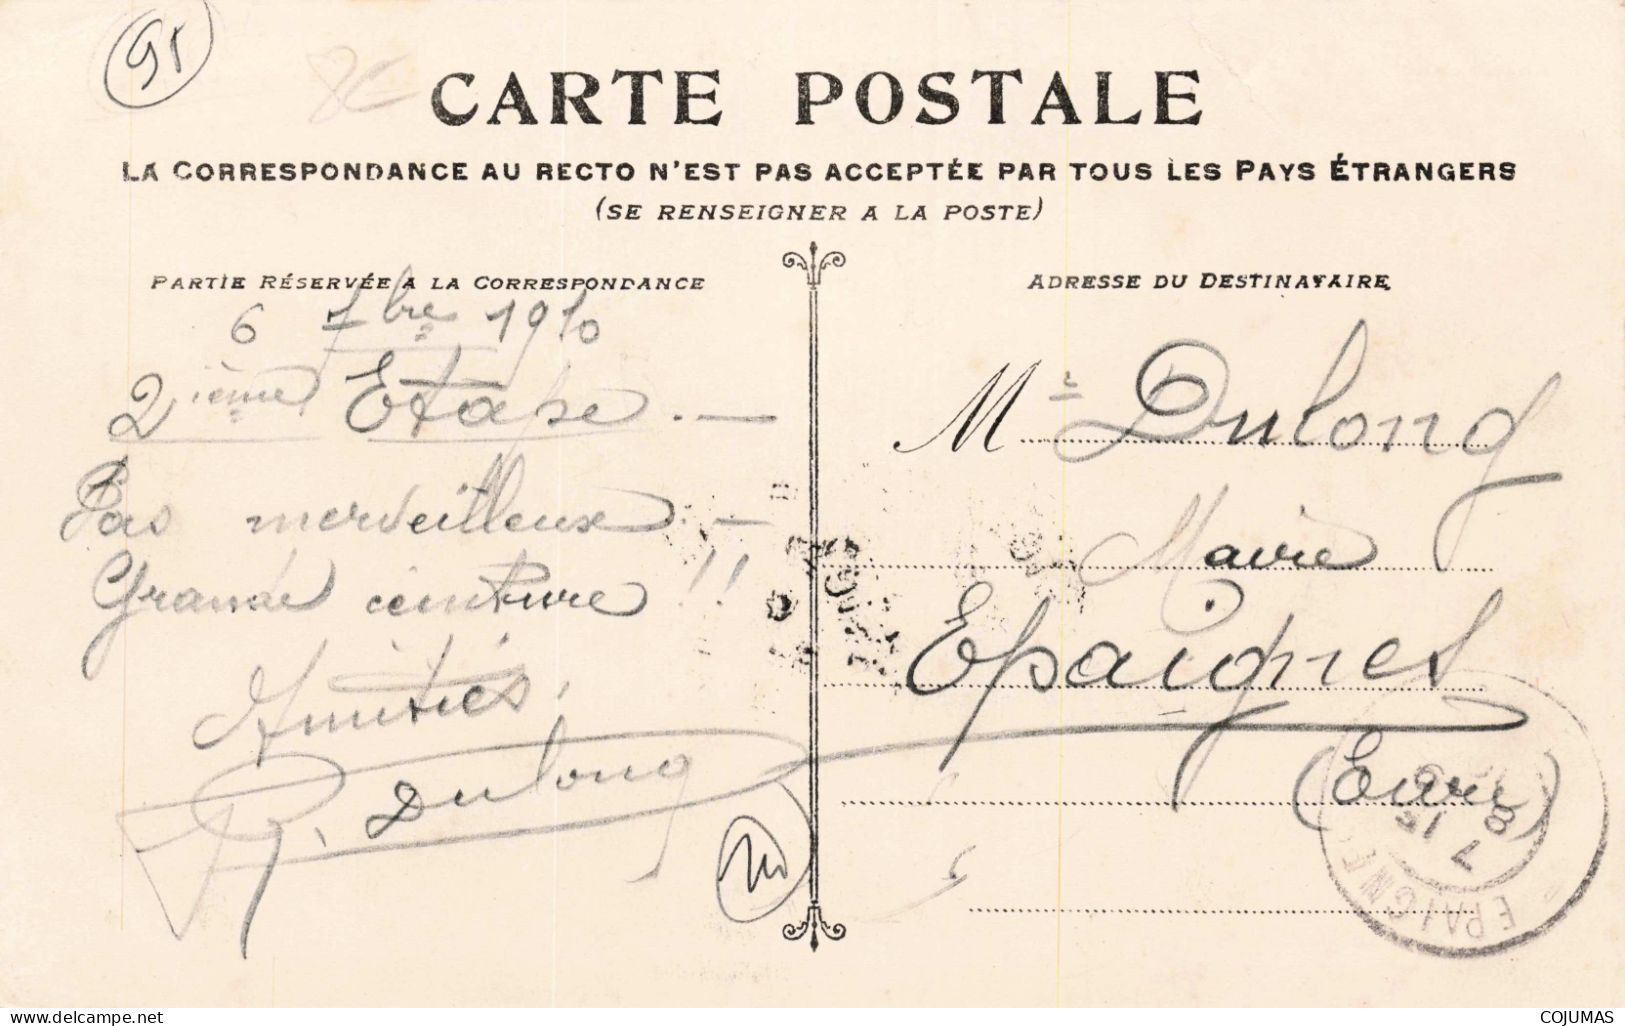 91
CARTE POSTALE
LA CORRESPONDANCE AU RECTO N'EST PAS ACCEPTÉE PAR TOUS LES PAYS ÉTRANGERS
(SE RENSEIGNER A LA POSTE)
PARTIE RÉSERVÉE A LA CORRESPONDANCE
6 7bre 1910
2ième Etape. —
Pas merveilleuse. —
Grande ceinture !!
Amitiés,
R. Dulong
ADRESSE DU DESTINATAIRE
Mr Dulong
Mairie
Epaignes
(Eure)
EPAIGNE
delcampe.net
COJUMAS